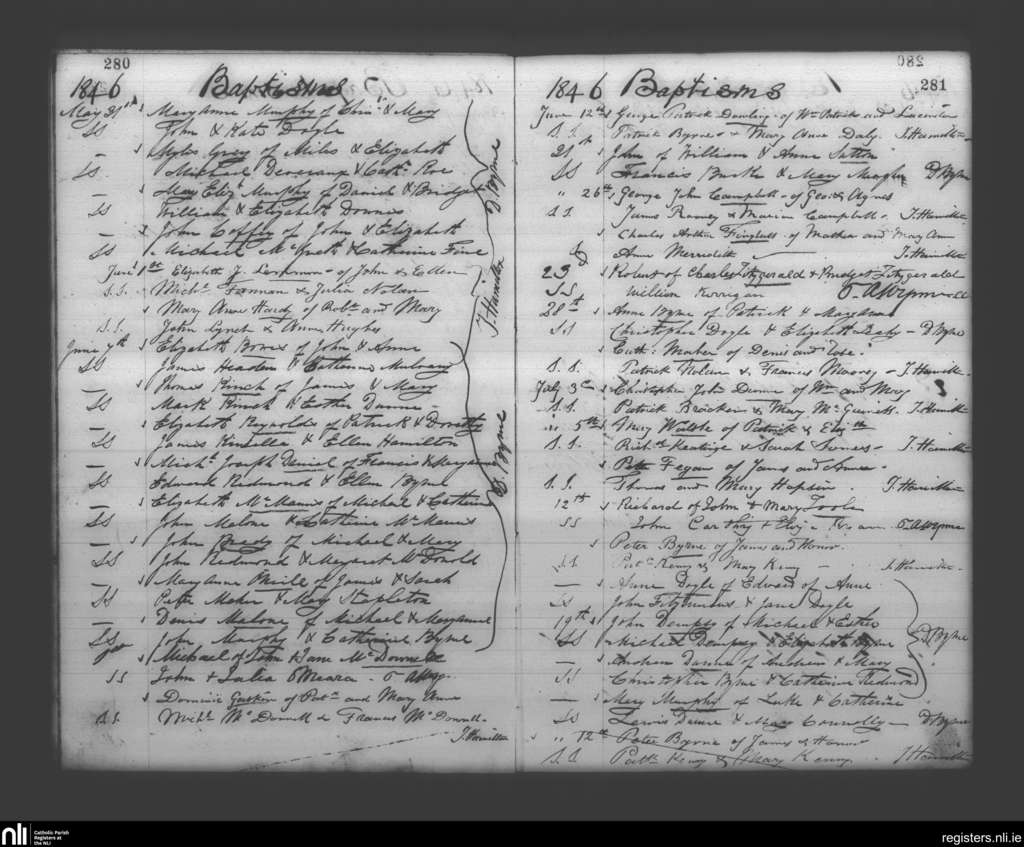 280
1846 Baptisms
May 31st s Mary Anne Murphy of Chrisr & Mary
SS John & Kate Doyle
— s Myles Grey of Miles & Elizabeth
SS Michael Devereaux & Cathe Roe
— s May Elizth Murphy of Daniel & Bridget
SS William & Elizabeth Downes
— s John Coffey of John & Elizabeth
SS Michael & Catherine
June 1st Elizabeth J. of John & Ellen
S.S. Michl Fannan & Julia Nolan
s Mary Anne Hardy of Robt and Mary
S.S. John Lynch & Anne Hughes
J. Hamilton D Byrne
June 7th s Elizabeth of John & Anne
SS James & Catherine
— s Thomas Kinch of James & Mary
SS Mark Kinch & Esther Dunne
— s Elizabeth Reynolds of Patrick & Dorothy
SS James Kinsella & Ellen Hamilton
— s Michl Joseph Daniel of Francis & Maryanne
SS Edward Redmond & Ellen Byrne
— s Elizabeth McManus of Michael & Catherine
SS John Malone & Catherine McManus
— s John Brady of Michael & Mary
SS John Redmond & Margaret McDonald
— s Mary Anne of James & Sarah
SS Peter Maher & Mary Stapleton
— s Denis Malone of Michael & Maryanne
SS John Murphy & Catherine Byrne
D. Byrne
s Michael of John & Jane McDonnell
SS John & Julia OMeara
s Dominic of Patk and Mary Anne
S.S. Michl McDonnell & Francis McDonnell.
J. Hamilton
281
1846 Baptisms
June 12th s George Patrick Dowling of Wm Patrick and Lucinda
S.S. Patrick Byrne & Mary Anne Daly. J. Hamilton
21 s John of William & Anne Sutton
SS Francis Burke & Mary Murphy D Byrne
" 26th s George John Campbell of Geo & Agnes
S.S. James & Maria Campbell. J. Hamilton
s Charles Arthur of Mathew and Mary Anne
& Anne J. Hamilton
23 s Robert of Charles Fitzgerald & Bridget Fitzgerald
SS William Korrigan
28th s Anne Byrne of Patrick & Maryanne
SS Christopher Doyle & Elizabeth — D Byrne
s Cath: Maher of Denis and Rose.
S.S. Patrick Nolan & Frances — J. Hamilton
July 3rd s Christopher John Dunne of Wm and Mary
S.S. Patrick & Mary J. Hamilton
" 5th s Mary Walshe of Patrick & Elizth
S.S. Richd Keatinge & Sarah — J. Hamilton
s Peter Fegan of James and Anne.
S.S. Thomas and Mary Hopkin. J. Hamilton
12th s Richard of John & Mary Toole
SS John Carthy &
s Peter Byrne of James and Honor.
SS Patk Kenny & Mary Kenny — J. Hamilton
— s Anne Doyle of Edward of Anne
SS John Fitzsimons & Jane Doyle
19th s John Dempsy of Michael & Esther
SS Michael Dempsy & Elizabeth Byrne
— s Andrew Dunne of Andrew & Mary
SS Christopher Byrne & Catherine Redmond
D Byrne
— s Mary Murphy of Luke & Catherine
SS Lewis Dunne & Mary Connolly — D Byrne
s " 12th Peter Byrne of James & Honor
S.S. Patk Kenny & Mary Kenny. J Hamilton
nli Catholic Parish
Registers at
the NLI
registers.nli.ie